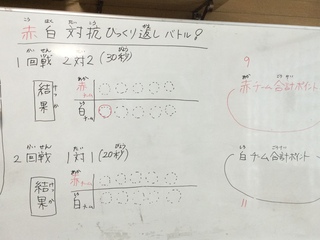 赤白対抗ひっくり返しバトル9
1回戦 2対2(30秒)
9
結果
赤チーム
白チーム
赤チーム合計ポイント
2回戦 1対1(20秒)
白チーム合計ポイント
結果
赤チーム
白チーム
11